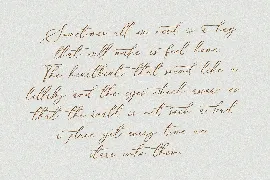 Sometimes all we need is a hug
that will make us feel love.
The heartbeat that sound like a
lullaby and the eyes which
that the world is not such a bad
place yet every time we
stare into them.